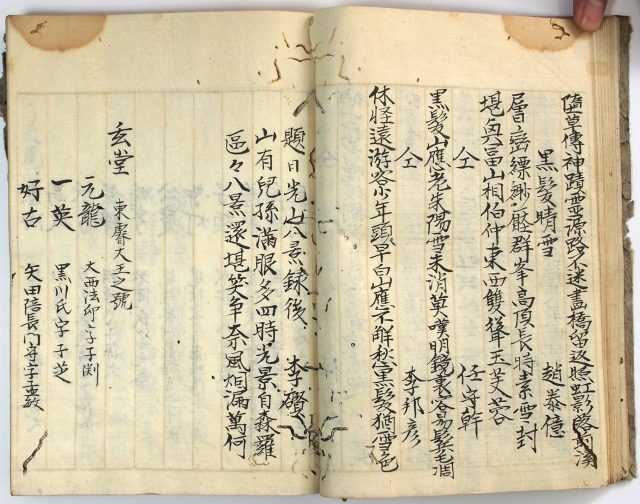 隨草傳神蹟霊源路不迷畫橋留返照虹影落前溪
黒髮晴雪 趙泰億
層巒縹緲壓群峯高頂長時素雪封
堪與富山相伯仲東西雙聳玉芙蓉
仝 任守幹
黒髮山應光朱陽雪未消莫嘆明鏡裏容易鬂毛凋
仝 李邦彦
休怪遠游客少年頭早白山應不解愁黒髮猶雪色
題日光山八景録後 李礥
山有兒孫滿眼多四時光景自森羅
區々八景還堪笑争奈風烟漏萬何
玄堂 東叡大王之號
元龍 大西法印字子淵
一英 黒川氏字子芝
好古 矢田陪長門守字孟敏